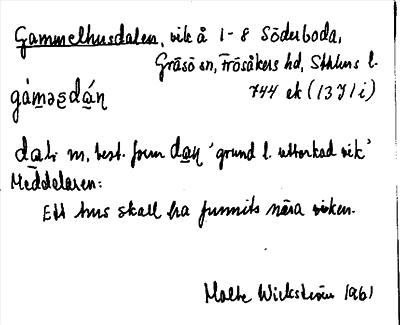 Gammelhusdalen, vik å 1-8 Söderboda,
Gräsö sn, Frösåkers hd, Sthlms l.
744 ek (13J1i)
dal m, best. form 'grund l. uttorkad vik'
Meddelaren:
Ett hus skall ha funnits nära viken.
Malte Wickström 1961